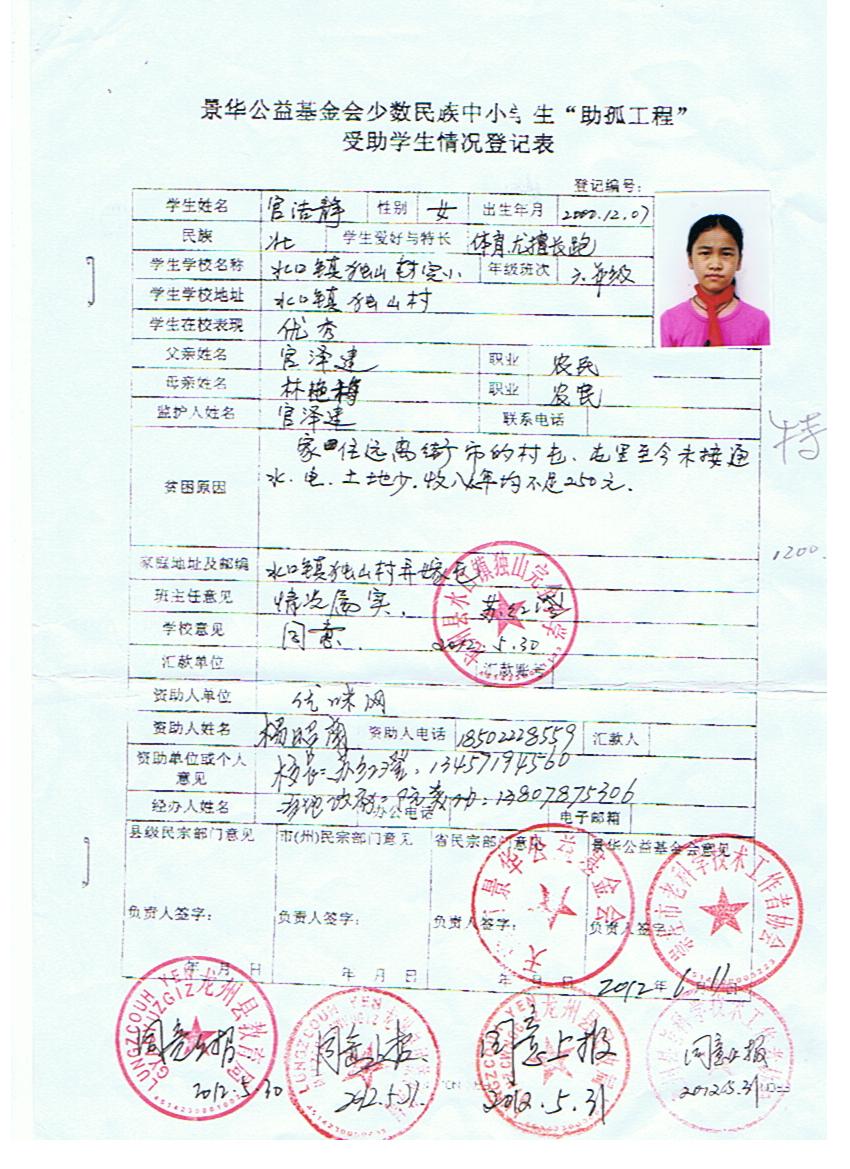 景华公益基金会少数民族中小学生“助孤工程”
受助学生情况登记表
登记编号:
学生姓名 官洁静 性别 女 出生年月 2000.12.07
民族 壮 学生爱好与特长 体育尤擅长跑
学生学校名称 水口镇独山村完小 年级班次 六年级
学生学校地址 水口镇独山村
学生在校表现 优秀
父亲姓名 官泽建 职业 农民
母亲姓名 林艳梅 职业 农民
监护人姓名 官泽建 联系电话
特
贫困原因 家住远离街市的村屯、屯里至今未接通
水、电、土地少.收入年均不足250元.
1200.
家庭地址及邮编 水口镇独山村弄嫁屯
班主任意见 情况属实. 苏红
学校意见 同意. 2012.5.30
汇款单位 汇款账号
资助人单位 优咪网
资助人姓名 杨昭茵 资助人电话 18502228559 汇款人
资助单位或个人意见 校长:苏红 13457194560
经办人姓名 办公电话 13807875306 电子邮箱
县级民宗部门意见 市(州)民宗部门意见 省民宗部门意见 景华公益基金会意见
负责人签字: 负责人签字: 负责人签字: 负责人签字:
年 月 日 年 月 日 年 月 日 2012年6月11日
景华公益基金会
市老科学技术工作者协会
LUNGZCOUH YEN GYAUYUZGIZ 龙州县教育局
同意上报 同意上报. 同意上报 同意上报
2012.5.30 2012.5.31. 2012.5.31 2012.5.31